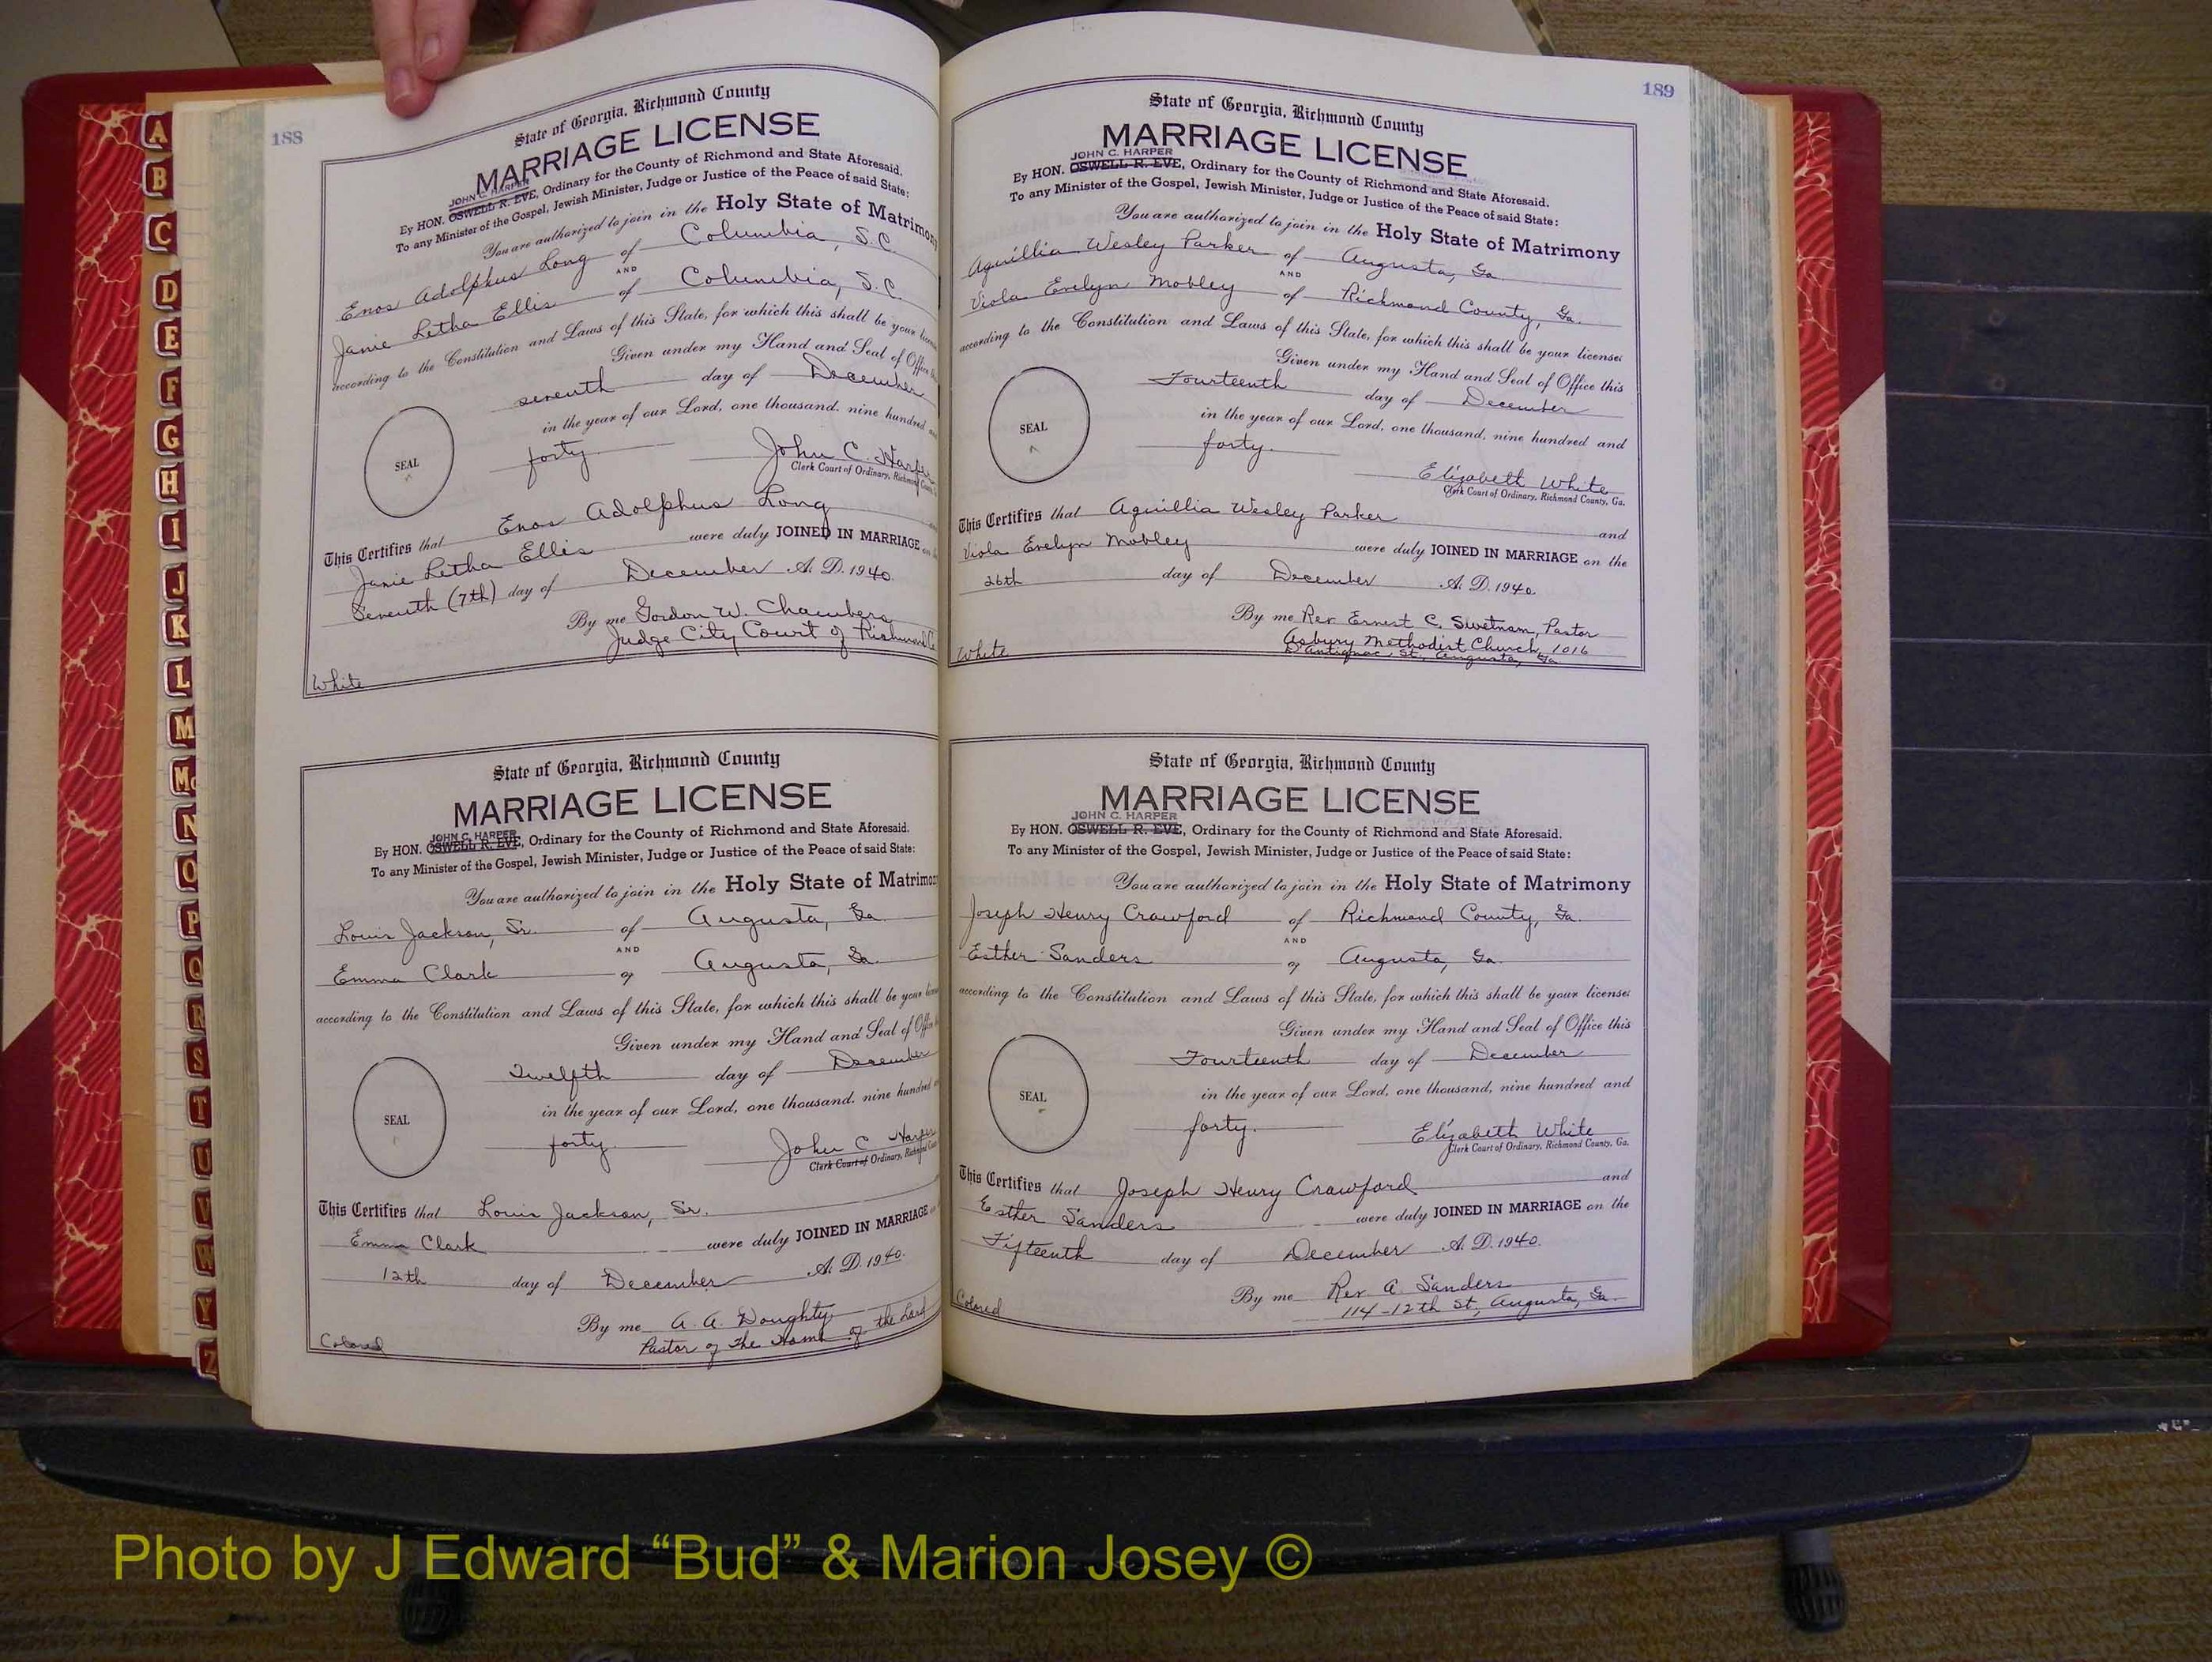 188
State of Georgia, Richmond County
MARRIAGE LICENSE
JOHN C. HARPER
By HON. OSWELL R. EVE, Ordinary for the County of Richmond and State Aforesaid.
To any Minister of the Gospel, Jewish Minister, Judge or Justice of the Peace of said State:
You are authorized to join in the Holy State of Matrimony
Enos Adolphus Long of Columbia, S.C.
AND
Janie Letha Ellis of Columbia, S.C.
according to the Constitution and Laws of this State, for which this shall be your
Given under my Hand and Seal of Office
seventh day of December
in the year of our Lord, one thousand, nine hundred
SEAL
forty John C. Harper
Clerk Court of Ordinary, Richmond
This Certifies that Enos Adolphus Long
Janie Letha Ellis were duly JOINED IN MARRIAGE
Seventh (7th) day of December A. D. 1940.
By me Gordon W. Chambers
Judge City Court of Richmond
White
State of Georgia, Richmond County
MARRIAGE LICENSE
JOHN C. HARPER
By HON. OSWELL R. EVE, Ordinary for the County of Richmond and State Aforesaid.
To any Minister of the Gospel, Jewish Minister, Judge or Justice of the Peace of said State:
You are authorized to join in the Holy State of Matrimony
Louis Jackson, Sr. of Augusta, Ga.
AND
Emma Clark of Augusta, Ga.
according to the Constitution and Laws of this State, for which this shall be your
Given under my Hand and Seal of
Twelfth day of December
in the year of our Lord, one thousand, nine hundred
SEAL
forty. John C Harper
Clerk Court of Ordinary, Richmond
This Certifies that Louis Jackson, Sr.
Emma Clark were duly JOINED IN MARRIAGE
12th day of December A. D. 1940.
By me A. A. Doughty
Pastor of The Home of the Lord
Colored
189
State of Georgia, Richmond County
MARRIAGE LICENSE
JOHN C. HARPER
By HON. OSWELL R. EVE, Ordinary for the County of Richmond and State Aforesaid.
To any Minister of the Gospel, Jewish Minister, Judge or Justice of the Peace of said State:
You are authorized to join in the Holy State of Matrimony
Aquillia Wesley Parker of Augusta, Ga.
AND
Viola Evelyn Mobley of Richmond County, Ga.
according to the Constitution and Laws of this State, for which this shall be your license:
Given under my Hand and Seal of Office this
Fourteenth day of December
in the year of our Lord, one thousand, nine hundred and
SEAL
forty.
Elizabeth White
Clerk Court of Ordinary, Richmond County, Ga.
This Certifies that Aquillia Wesley Parker and
Viola Evelyn Mobley were duly JOINED IN MARRIAGE on the
26th day of December A. D. 1940.
By me Rev Ernest C. Swetnam, Pastor
Asbury Methodist Church, 1016
D'Antignac St., Augusta, Ga
White
State of Georgia, Richmond County
MARRIAGE LICENSE
JOHN C. HARPER
By HON. OSWELL R. EVE, Ordinary for the County of Richmond and State Aforesaid.
To any Minister of the Gospel, Jewish Minister, Judge or Justice of the Peace of said State:
You are authorized to join in the Holy State of Matrimony
Joseph Henry Crawford of Richmond County, Ga.
AND
Esther Sanders of Augusta, Ga.
according to the Constitution and Laws of this State, for which this shall be your license:
Given under my Hand and Seal of Office this
Fourteenth day of December
in the year of our Lord, one thousand, nine hundred and
SEAL
forty. Elizabeth White
Clerk Court of Ordinary, Richmond County, Ga.
This Certifies that Joseph Henry Crawford and
Esther Sanders were duly JOINED IN MARRIAGE on the
Fifteenth day of December A. D. 1940.
By me Rev A. Sanders
114-12th St, Augusta, Ga.
Colored
A
B
C
D
E
F
G
H
I
J
K
L
M
Mc
N
O
P
Q
R
S
T
U
V
W
Y
Z
Photo by J Edward “Bud” & Marion Josey ©